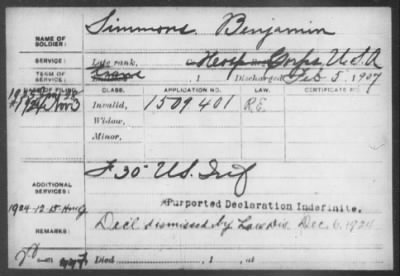 NAME OF SOLDIER: Simmons, Benjamin
SERVICE: Late rank, Hosp Corps, U.S.A
TERM OF SERVICE: , 1 Discharged Feb 5, 1907
DATE OF FILING. CLASS. APPLICATION NO. LAW. CERTIFICATE NO.
Invalid, 1509401 RE
Widow,
Minor,
ADDITIONAL SERVICES: F 30" U.S. Inf
Purported Declaration Indefinite.
1924-12-15
REMARKS: Decl dismissed by Law Div. Dec. 6, 1924
Died , 1 , at